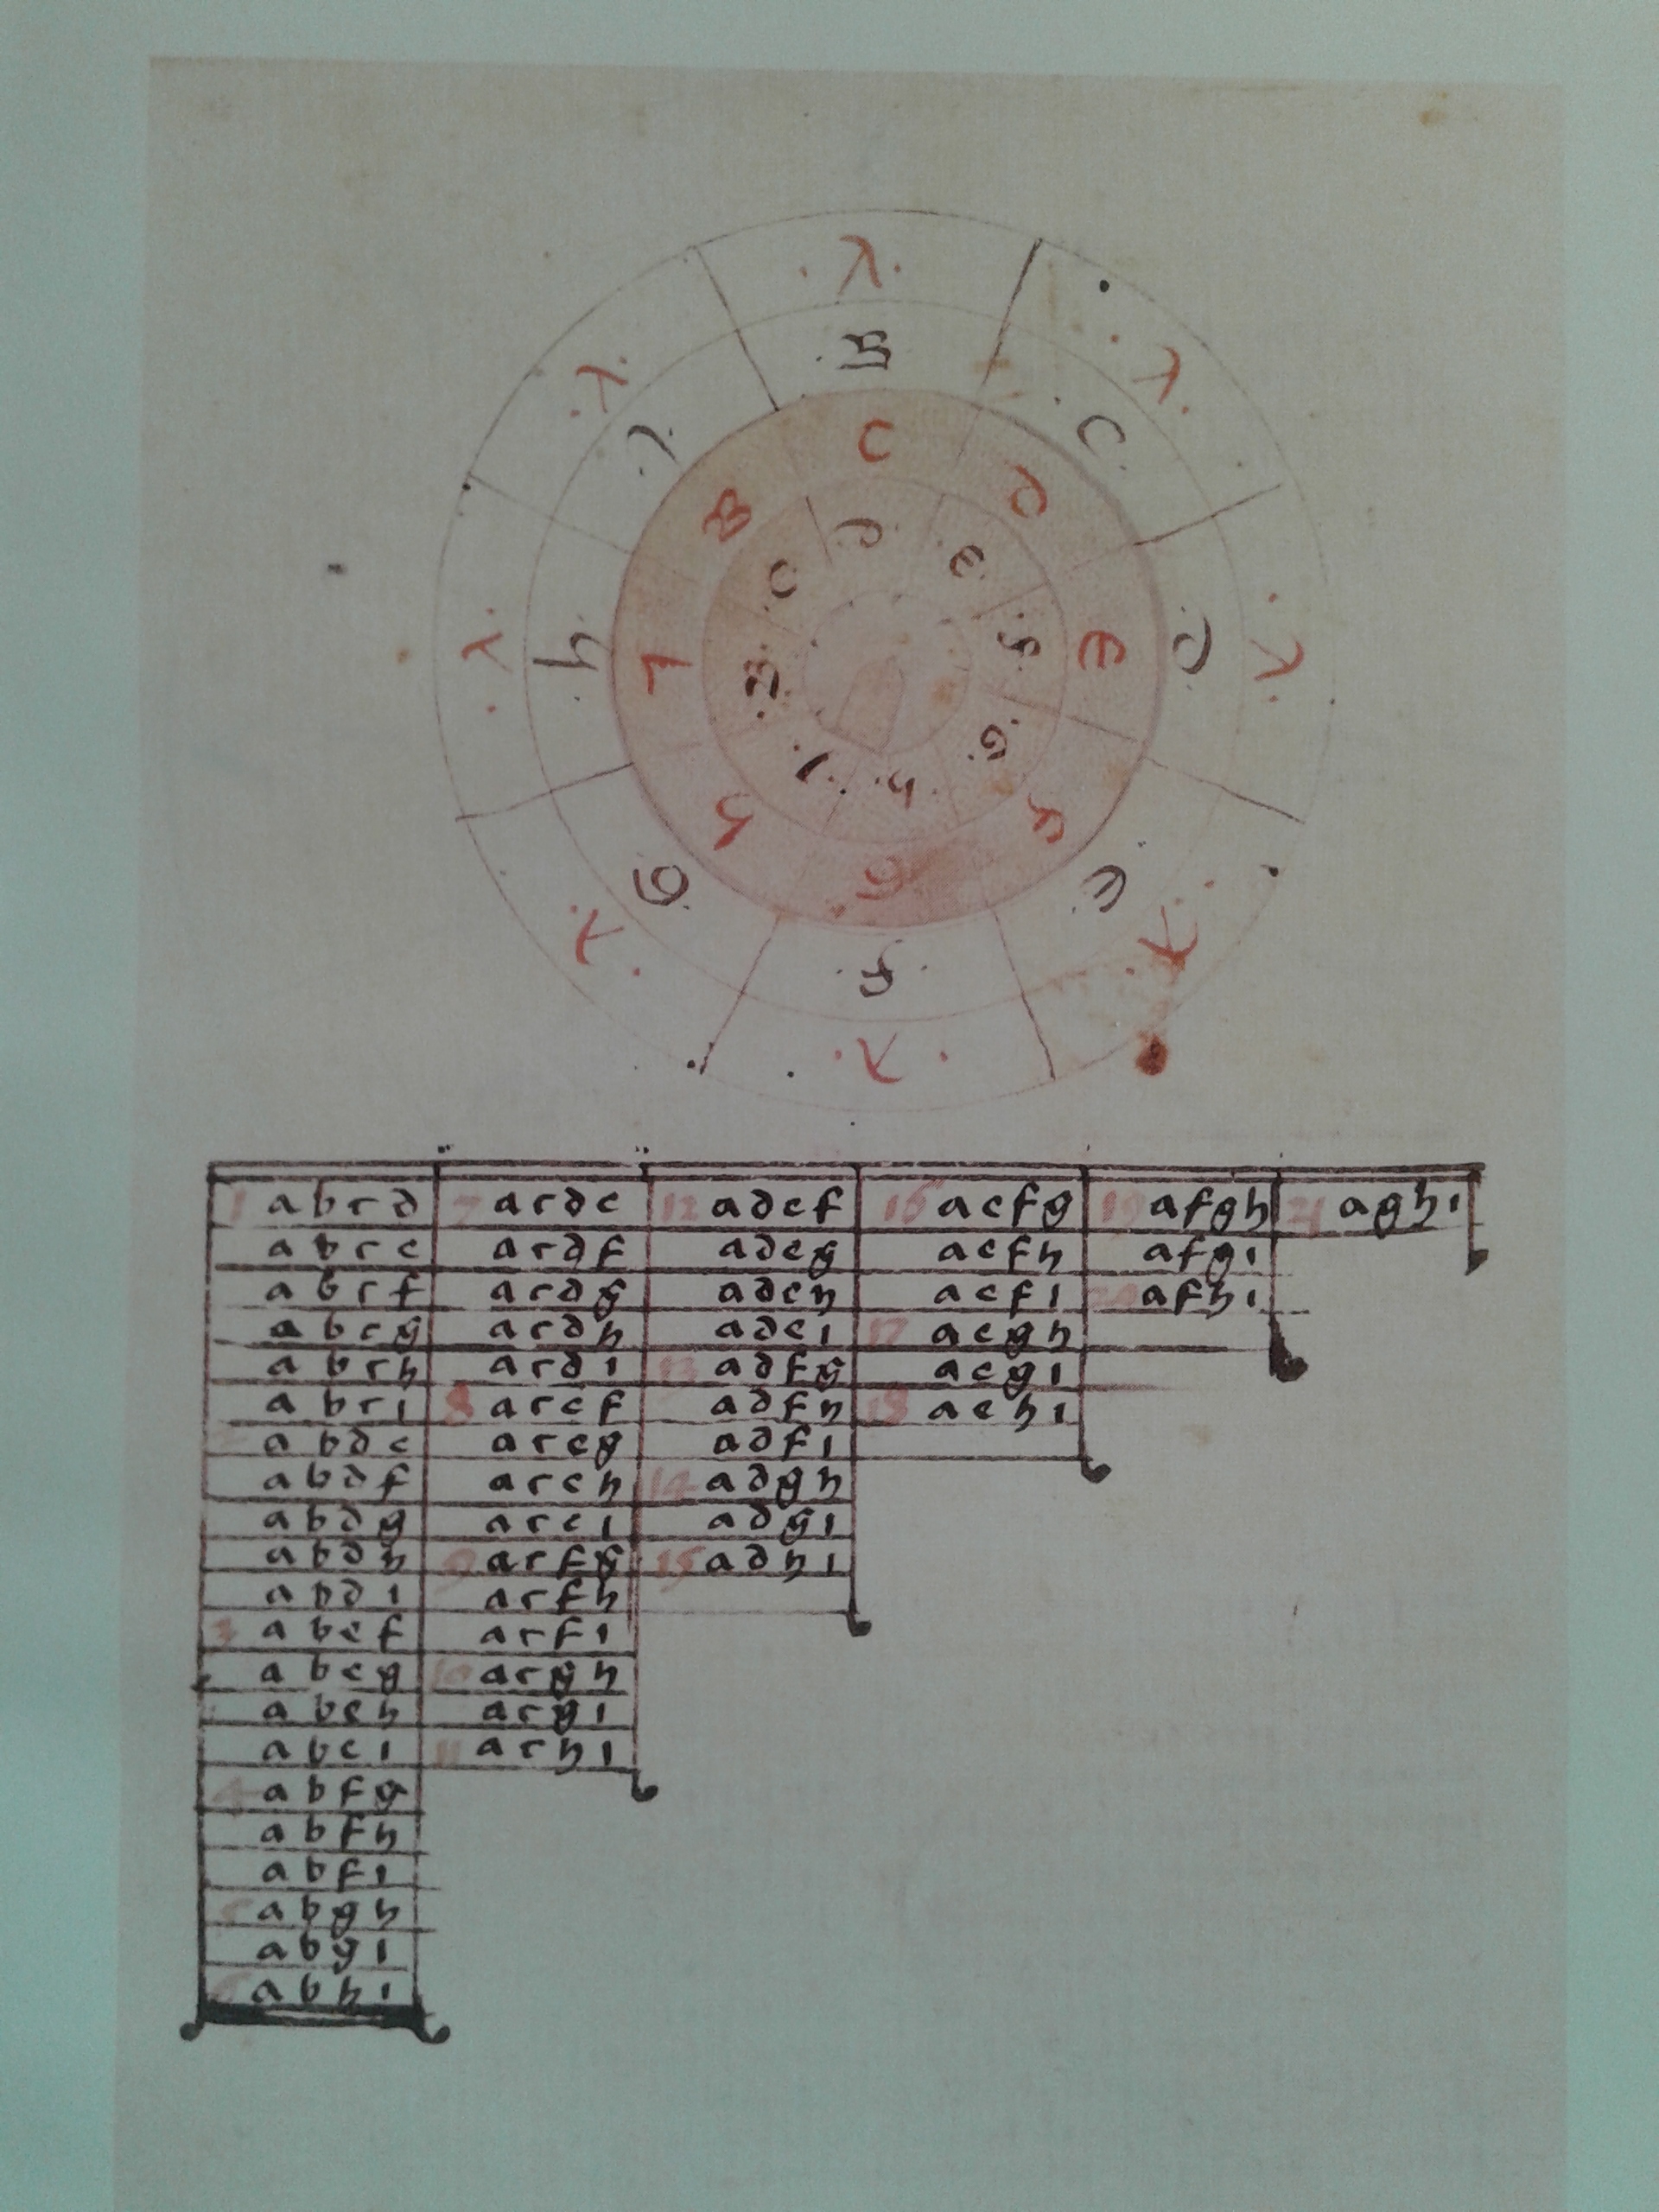 λ λ λ λ λ λ λ λ
B C D E F G h I
C d E f G h I B
d e f G h I B C
1 abcd 7 acde 12 adef 16 aefg 19 afgh 21 aghi
abce acdf adeg aefh afgi
abcf acdg adeh aefi 20 afhi
abcg acdh adei 17 aegh
abch acdi 13 adfg aegi
abci 8 acef adfh 18 aehi
abde aceg adfi
abdf aceh 14 adgh
abdg acei adgi
abdh 9 acfg 15 adhi
abdi acfh
3 abef acfi
abeg 10 acgh
abeh acgi
abei 11 achi
4 abfg
abfh
abfi
5 abgh
abgi
6 abhi